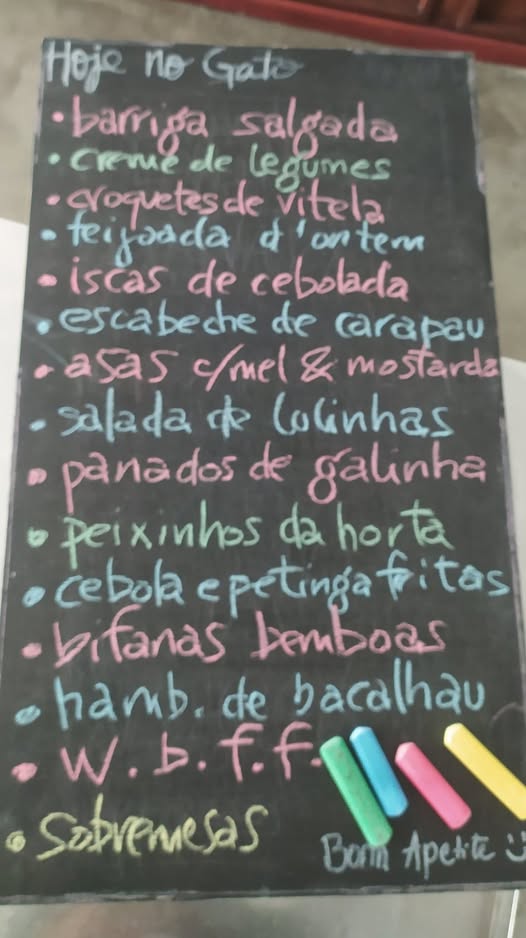 Hoje no Gato
• barriga salgada
• creme de legumes
• croquetes de vitela
• feijoada d'ontem
• iscas de cebolada
• escabeche de carapau
• asas c/mel & mostarda
• salada de lulinhas
• panados de galinha
• peixinhos da horta
• cebola e petinga fritas
• bifanas bemboas
• hamb. de bacalhau
• W. b. f. f.
• sobremesas
Bom Apetite :)